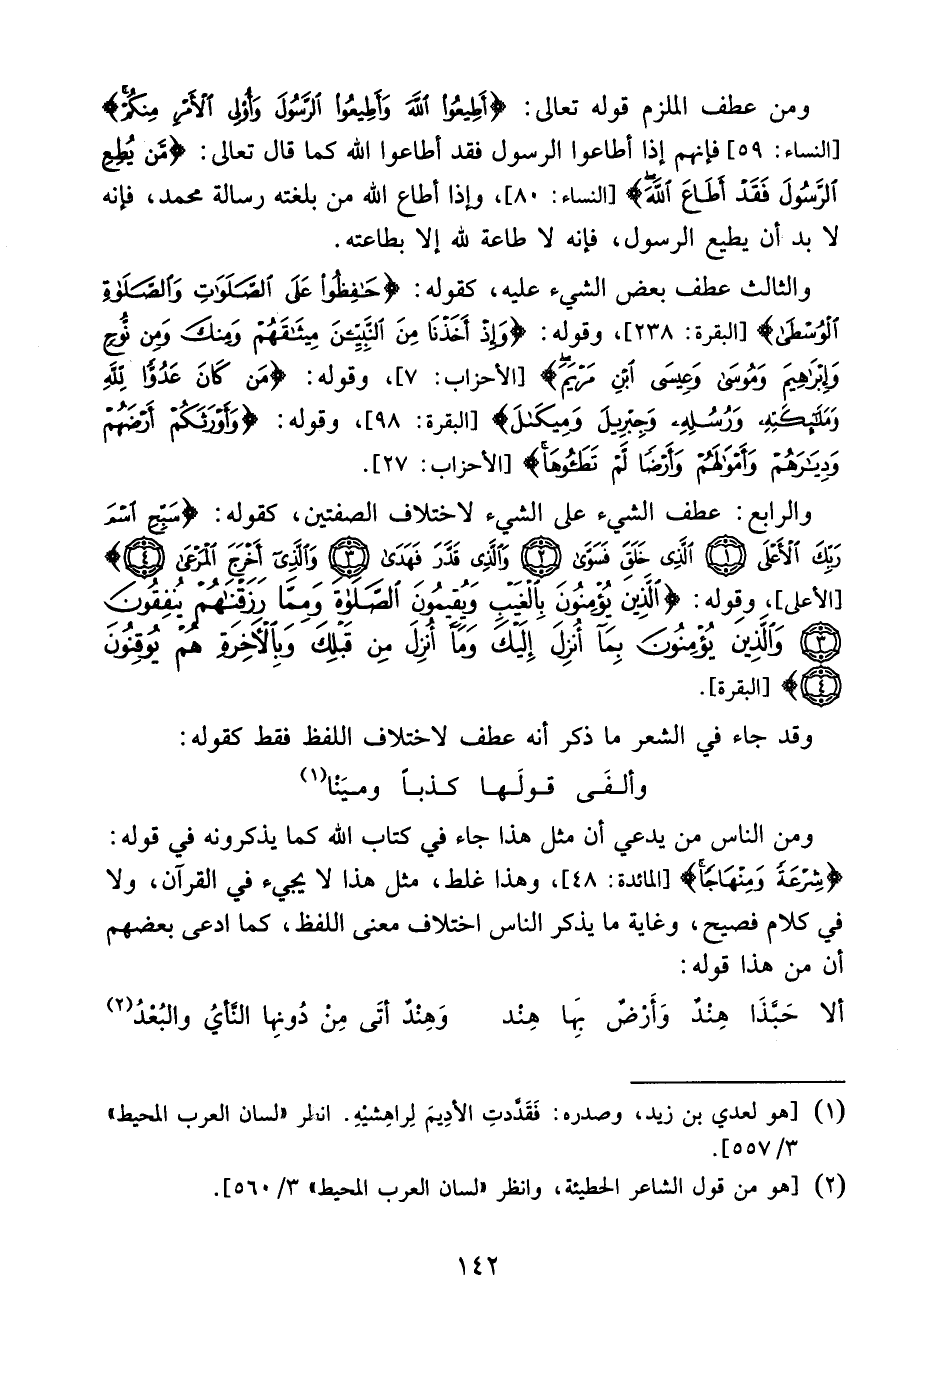 ومن عطف الملزم قوله تعالى: ﴿أَطِيعُوا۟ ٱللَّهَ وَأَطِيعُوا۟ ٱلرَّسُولَ وَأُو۟لِى ٱلْأَمْرِ مِنكُمْ ۚ﴾
[النساء: ٥٩] فإنهم إذا أطاعوا الرسول فقد أطاعوا الله كما قال تعالى: ﴿مَّن يُطِعِ
ٱلرَّسُولَ فَقَدْ أَطَاعَ ٱللَّهَ ۖ﴾ [النساء: ٨٠]، وإذا أطاع الله من بلغته رسالة محمد، فإنه
لا بد أن يطيع الرسول، فإنه لا طاعة لله إلا بطاعته.
والثالث عطف بعض الشيء عليه، كقوله: ﴿حَـٰفِظُوا۟ عَلَى ٱلصَّلَوَٰتِ وَٱلصَّلَوٰةِ
ٱلْوُسْطَىٰ﴾ [البقرة: ٢٣٨]، وقوله: ﴿وَإِذْ أَخَذْنَا مِنَ ٱلنَّبِيِّـۧنَ مِيثَـٰقَهُمْ وَمِنكَ وَمِن نُّوحٍ
وَإِبْرَٰهِيمَ وَمُوسَىٰ وَعِيسَى ٱبْنِ مَرْيَمَ ۖ﴾ [الأحزاب: ٧]، وقوله: ﴿مَن كَانَ عَدُوًّا لِّلَّهِ
وَمَلَـٰٓئِكَتِهِۦ وَرُسُلِهِۦ وَجِبْرِيلَ وَمِيكَىٰلَ﴾ [البقرة: ٩٨]، وقوله: ﴿وَأَوْرَثَكُمْ أَرْضَهُمْ
وَدِيَـٰرَهُمْ وَأَمْوَٰلَهُمْ وَأَرْضًا لَّمْ تَطَـُٔوهَا ۚ﴾ [الأحزاب: ٢٧].
والرابع: عطف الشيء على الشيء لاختلاف الصفتين، كقوله: ﴿سَبِّحِ ٱسْمَ
رَبِّكَ ٱلْأَعْلَى ۝١ ٱلَّذِى خَلَقَ فَسَوَّىٰ ۝٢ وَٱلَّذِى قَدَّرَ فَهَدَىٰ ۝٣ وَٱلَّذِىٓ أَخْرَجَ ٱلْمَرْعَىٰ ۝٤﴾
[الأعلى]، وقوله: ﴿ٱلَّذِينَ يُؤْمِنُونَ بِٱلْغَيْبِ وَيُقِيمُونَ ٱلصَّلَوٰةَ وَمِمَّا رَزَقْنَـٰهُمْ يُنفِقُونَ
۝٣ وَٱلَّذِينَ يُؤْمِنُونَ بِمَآ أُنزِلَ إِلَيْكَ وَمَآ أُنزِلَ مِن قَبْلِكَ وَبِٱلْـَٔاخِرَةِ هُمْ يُوقِنُونَ
۝٤﴾ [البقرة].
وقد جاء في الشعر ما ذكر أنه عطف لاختلاف اللفظ فقط كقوله:
وألفَى قولَها كذباً ومَيْنَا(١)
ومن الناس من يدعي أن مثل هذا جاء في كتاب الله كما يذكرونه في قوله:
﴿شِرْعَةً وَمِنْهَاجًا ۚ﴾ [المائدة: ٤٨]، وهذا غلط، مثل هذا لا يجيء في القرآن، ولا
في كلام فصيح، وغاية ما يذكر الناس اختلاف معنى اللفظ، كما ادعى بعضهم
أن من هذا قوله:
ألا حَبَّذَا هِنْدٌ وَأَرْضٌ بِهَا هِنْد وَهِنْدٌ أتَى مِنْ دُونِها النَّأيُ والبُعْدُ(٢)
(١) [هو لعدي بن زيد، وصدره: فَقَدَّدتِ الأدِيمَ لِراهشيْهِ. انظر «لسان العرب المحيط»
٣/ ٥٥٧].
(٢) [هو من قول الشاعر الحطيئة، وانظر «لسان العرب المحيط» ٣/ ٥٦٠].
١٤٢